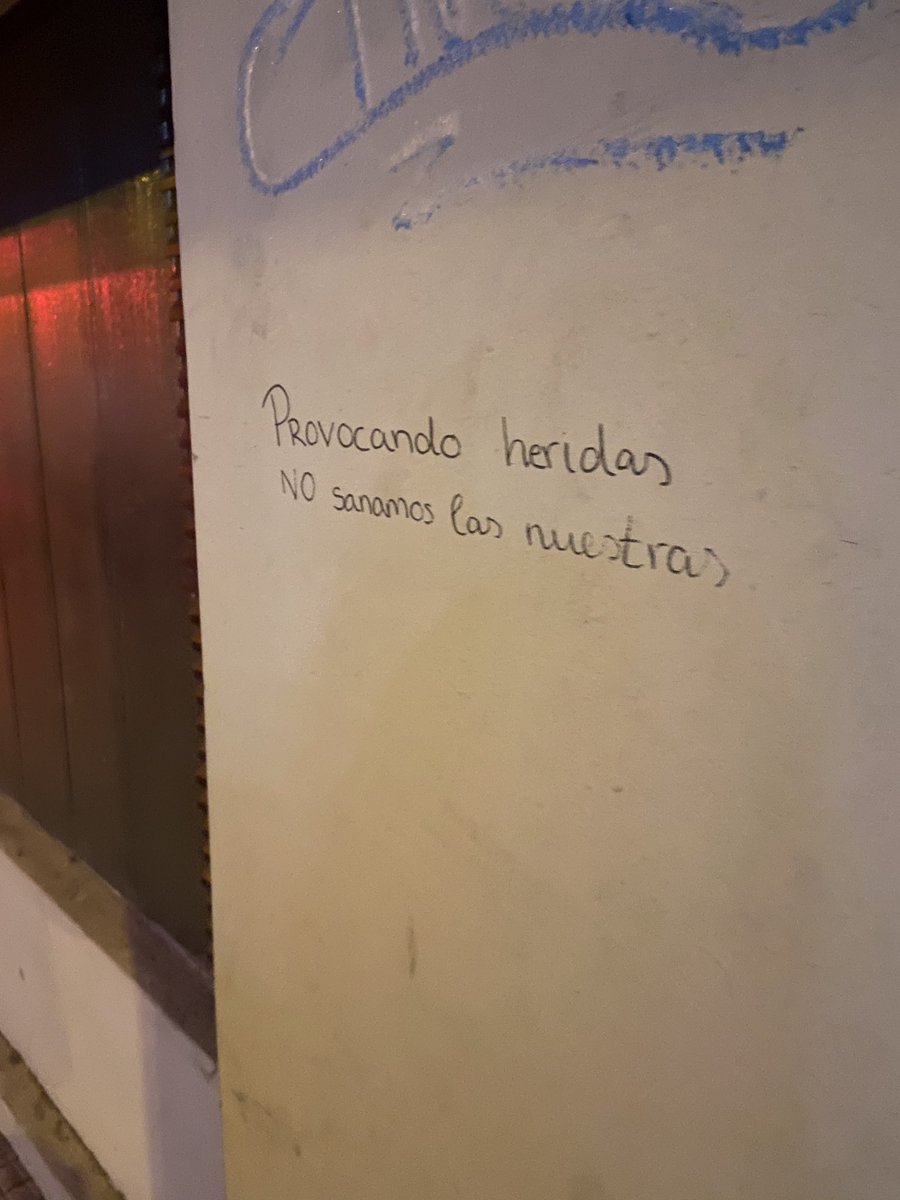 PROVOCANDO heridas
NO sanamos las nuestras